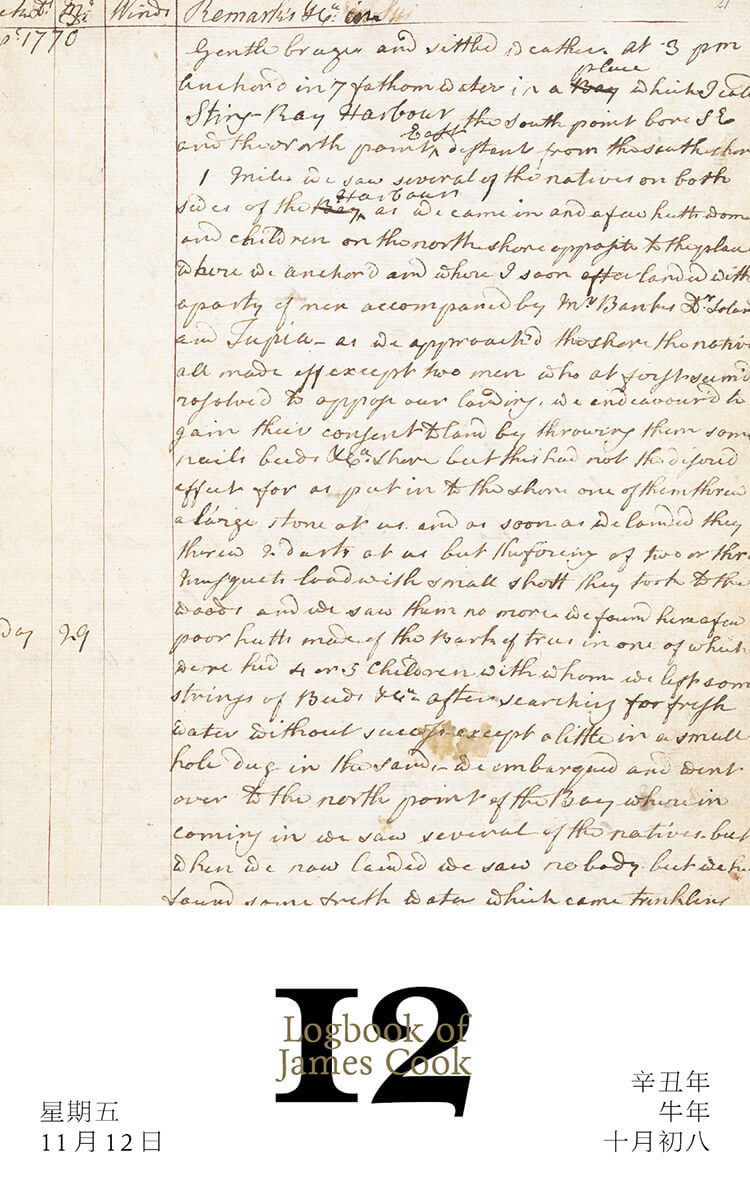 Winds Remarks &Cª in
1770
Gentle brazes and settled weather. at 3 pm
anchord in 7 fathom water in a Bay place which I call
Sting-Ray Harbour the south point bore SE
and the north point East distant from the south shore
1 Mile we saw several of the natives on both
sides of the Bay Harbour as we came in and a few hutts wome
and children on the north shore opposite to the place
where we anchord and where I soon after landed with
a party of men accompaned by Mr Banks Dr Solan
and Tupia - as we approach'd the shore the native
all made off except two men who at first seem'd
resolved to oppose our landing. we endeavour'd to
gain their consent to land by throwing them some
nails beeds &Cª shore but this had not the desired
effect for as put in to the shore one of them threw
a large stone at us and as soon as we landed they
threw 2 darts at us but the fireing of two or thre
musquets load with small shott they took to the
woods and we saw them no more we found here a few
day 29 poor hutts made of the Bark of trees in one of which
were hid 4 or 5 Children with whom we left some
strings of Beeds &Cª after searching for fresh
water without success except a little in a small
hole dug in the sand, we embarqued and went
over to the north point of the Bay where in
coming in we saw several of the natives but
when we now landed we saw no body but we he
found some fresh water which came trinkling
12
Logbook of
James Cook
星期五
11月12日
辛丑年
牛年
十月初八